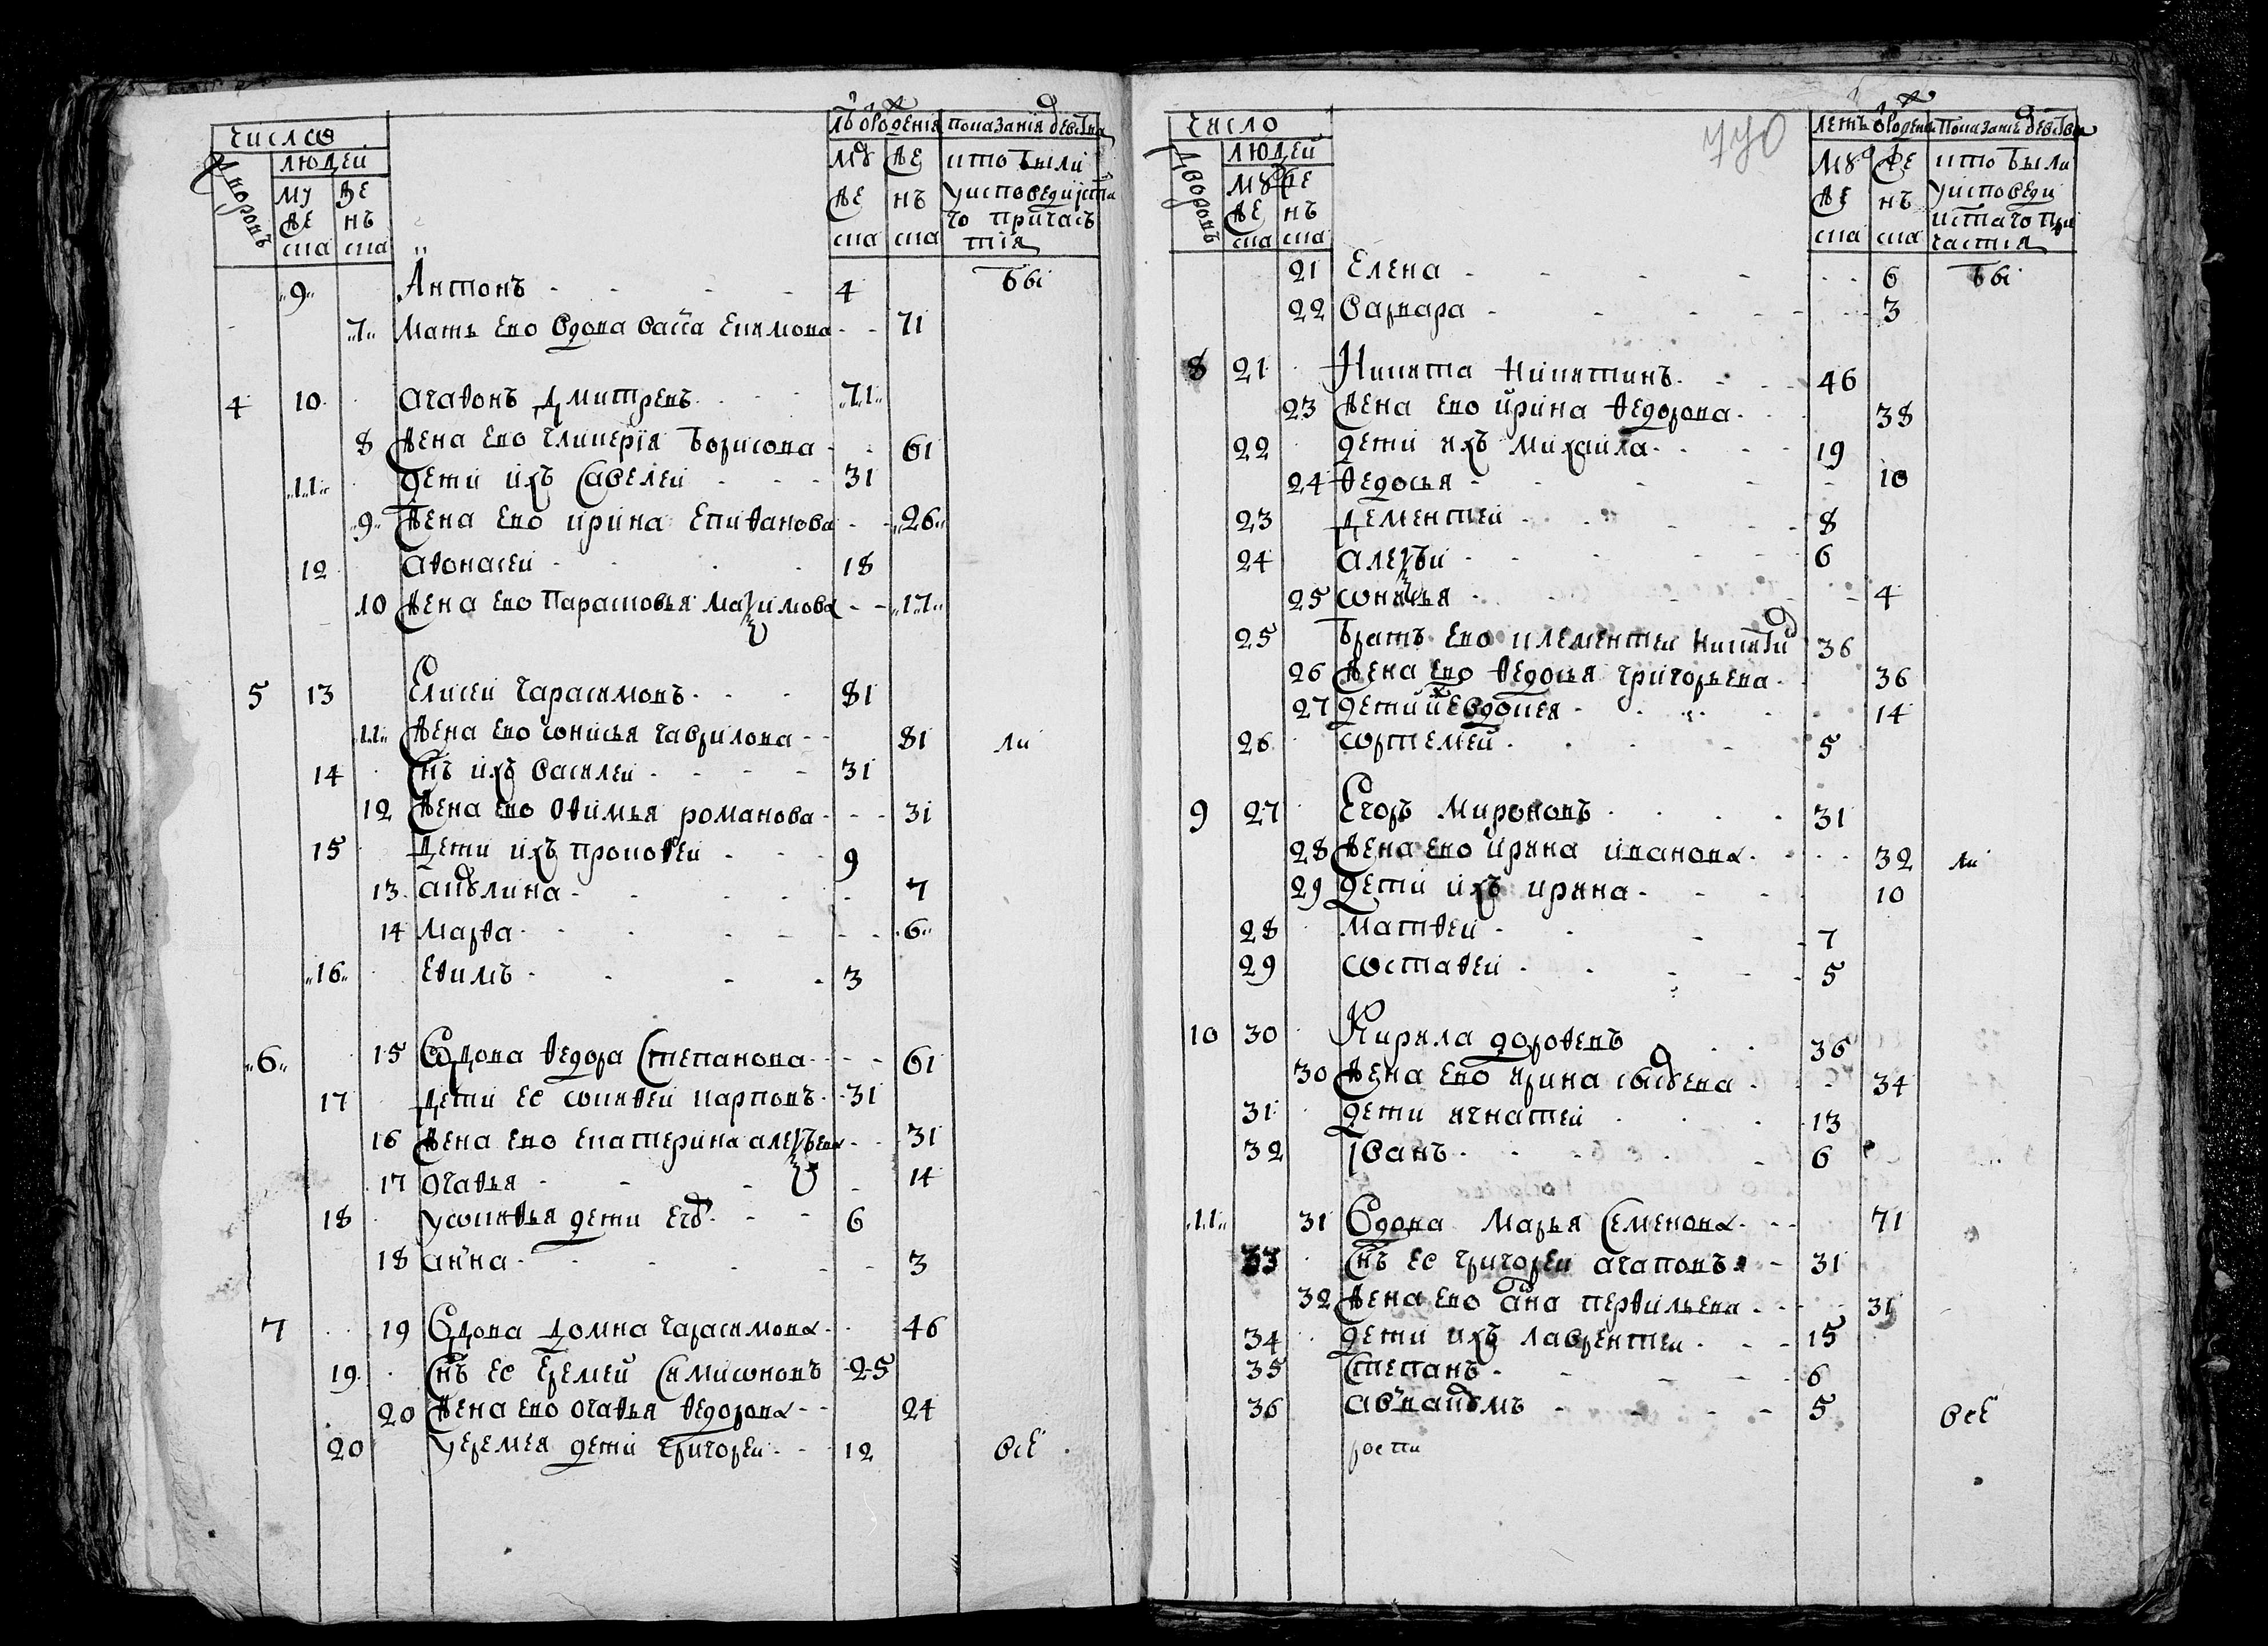 число
людей
дворовъ
муже ска
женъ ска
лѣ о рожденія
муже ска
женъ ска
показанія действа
кто были
у исповеди і ста
го причас
тия
9 Антонъ 4 бы
7 Мать ево вдова васса екимова 71
4 10 агафонъ дмитревъ 71
8 жена ево гликерїя борисова 61
11 дети ихъ савелеи 31
9 жена ево ирина епифанова 26
12 афонасеи 18
10 жена ево парасковья маѯимова 17
5 13 Елисеи гарасимовъ 81
11 жена ево гавриловa 81 ли
14 снъ ихъ василеи 31
12 жена ево офимья романова 31
15 дети ихъ прокофеи 9
13 акулина 7
14 марфа 6
16 ефимъ 3
6 15 вдова федора степанова 61
17 дети ее иоакифеи карповъ 31
16 жена ево екатерина алеѯѣева 31
17 огафья 14
18 дети его 6
18 анна 3
7 19 вдова домна гарасимова 46
19 снъ ее еремей самисоновъ 25
20 жена ево огафья федорова 24
20 у еремея дети григореи 12 всѣ
770
число
людей
дворовъ
муже ска
женъ ска
летъ о рожени
муже ска
женъ ска
показани действа
кто были
у исповеди
и стаго при
частия
21 Елена 6 бы
22 варвара 3
8 21 Никита никитинъ 46
23 жена ево ирина федорова 38
22 дети ихъ михаила 19
24 федосья 10
23 дементей 8
24 алеѯѣи 6
25 софья 4
25 братъ ево клементеи никити 36
26 жена ево федосья григорьева 36
27 дети ихъ евдокея 14
26 ортемей 5
9 27 Егоръ мироновъ 31
28 жена ево ирина иванова 32 ли
29 дети ихъ ирина 10
28 матфеи 7
29 остафеи 5
10 30 Кирила дорофевъ 36
30 жена ево ирина савуева 34
31 дети игнатей 13
32 іванъ 6
11 31 вдова марья семенова 71
33 снъ ее григореи агаповъ 31
32 жена ево анна перфильева 31
34 дети ихъ лаврентеи 15
35 степанъ 6
36 аввакумъ 5 всѣ